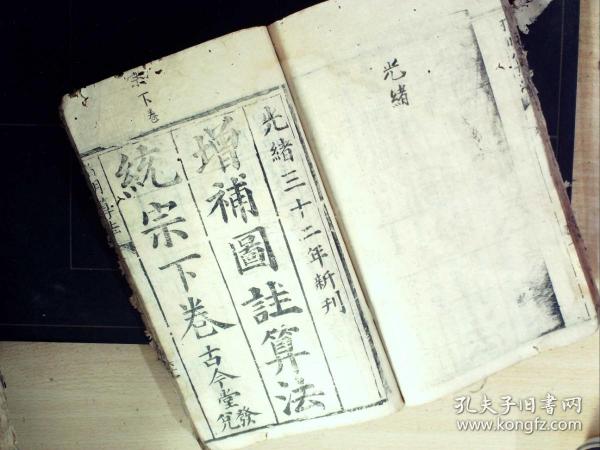 光緒
光緒三十二年新刊
增補圖註算法
統宗下卷
古今堂發兌
宗下卷
孔夫子旧书网
www.kongfz.com